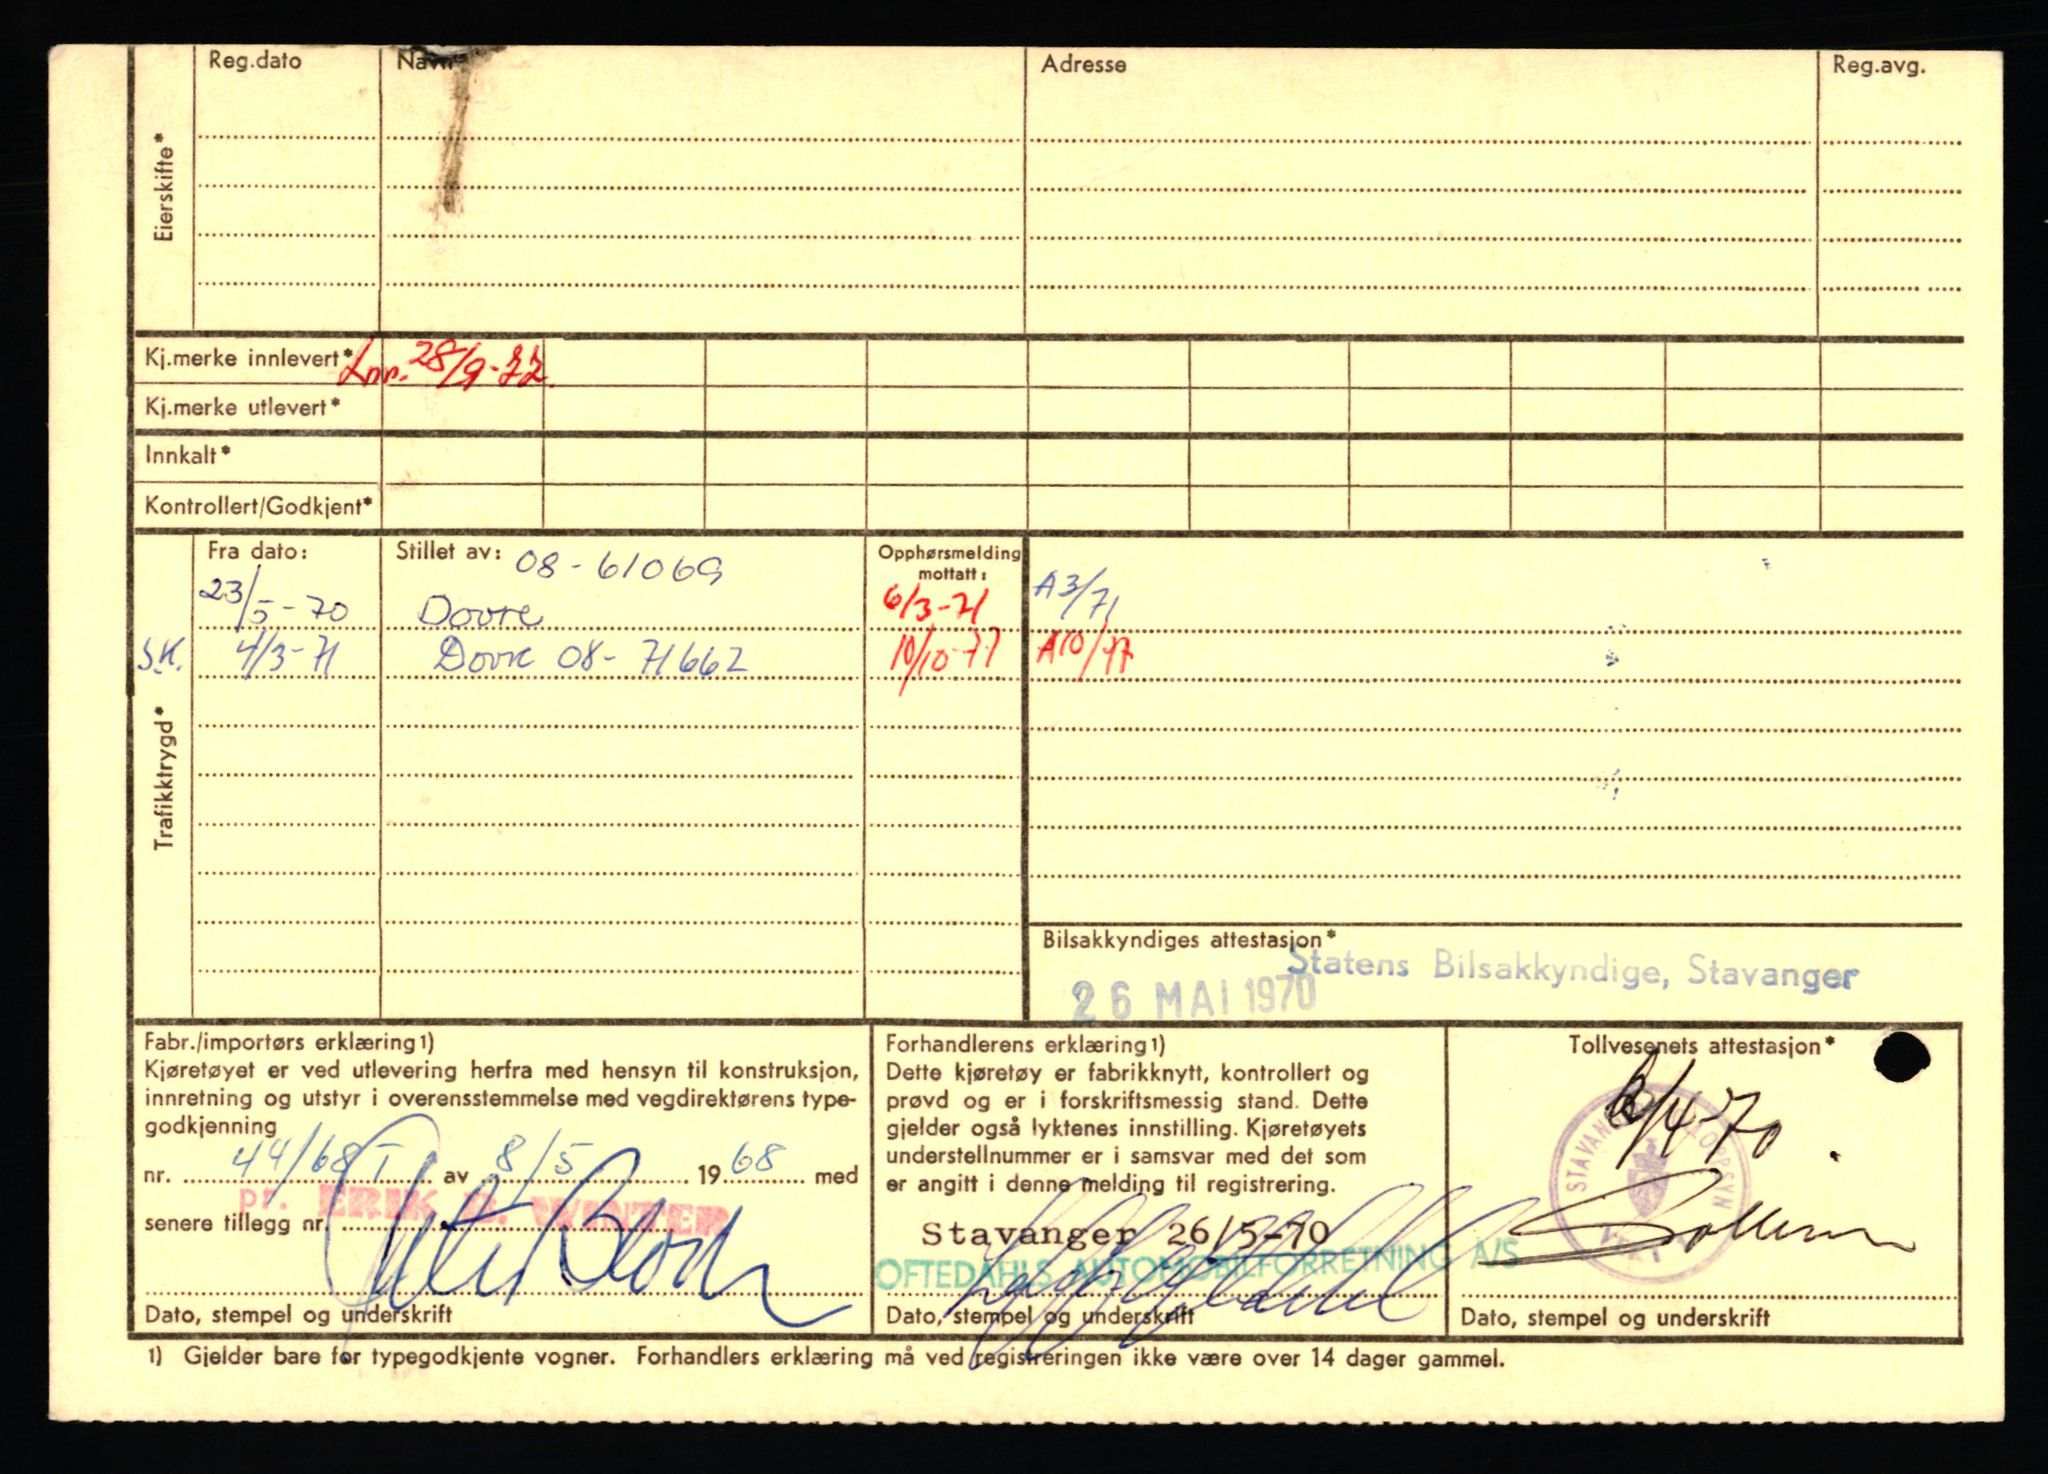 Reg.dato Navn Adresse Reg.avg.
Eierskifte*
Kj.merke innlevert* Inn. 28/9-77.
Kj.merke utlevert*
Innkalt*
Kontrollert/Godkjent*
Fra dato: Stillet av: 08-61069 Opphørsmelding mottatt:
23/5-70 Dovre 6/3-71 A3/71
S.K. 4/3-71 Dovre 08-71662 10/10-77 A10/77
Trafikktrygd*
Bilsakkyndiges attestasjon*
Statens Bilsakkyndige, Stavanger
26 MAI 1970
Fabr./importørs erklæring 1)
Kjøretøyet er ved utlevering herfra med hensyn til konstruksjon,
innretning og utstyr i overensstemmelse med vegdirektørens type-
godkjenning
nr. 44/68 I av 8/5 1968 med
pr. ERIK B. WINTER
senere tillegg nr.
Dato, stempel og underskrift
Forhandlerens erklæring 1)
Dette kjøretøy er fabrikknytt, kontrollert og
prøvd og er i forskriftsmessig stand. Dette
gjelder også lyktenes innstilling. Kjøretøyets
understellnummer er i samsvar med det som
er angitt i denne melding til registrering.
Stavanger 26/5-70
OFTEDAHLS AUTOMOBILFORRETNING A/S
Dato, stempel og underskrift
Tollvesenets attestasjon*
/4-70
STAVANGER TOLLOPPSYN
Dato, stempel og underskrift
1) Gjelder bare for typegodkjente vogner. Forhandlers erklæring må ved registreringen ikke være over 14 dager gammel.